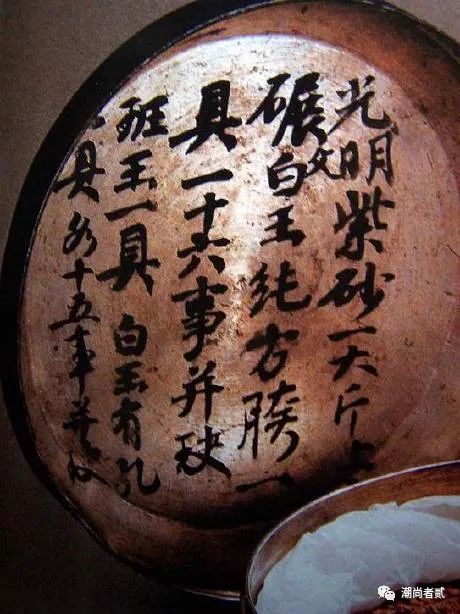 光明紫砂一大斤
碾文白玉純方胯一
具一十六事并玦
班玉一具 白玉有孔
具各十五事并
潮尚者贰